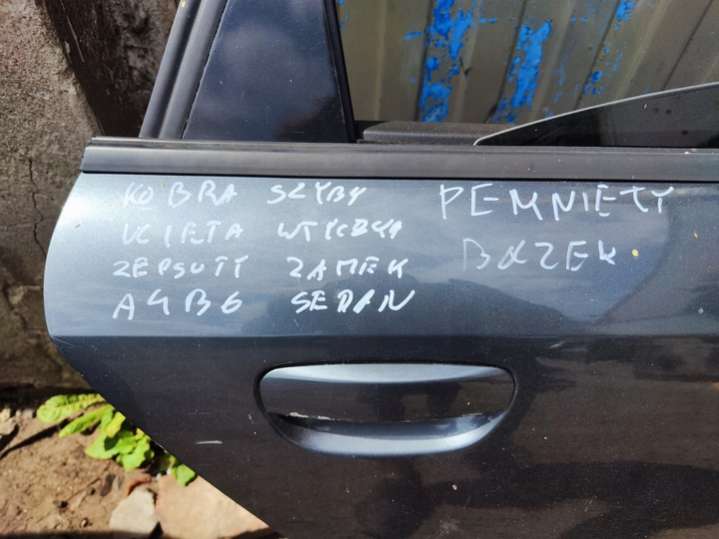 KOBRA SZYBY
UCIETA WTYCZKA
ZEPSUTY ZAMEK
A4B6 SEDAN
PEMNIETY
BOZEK